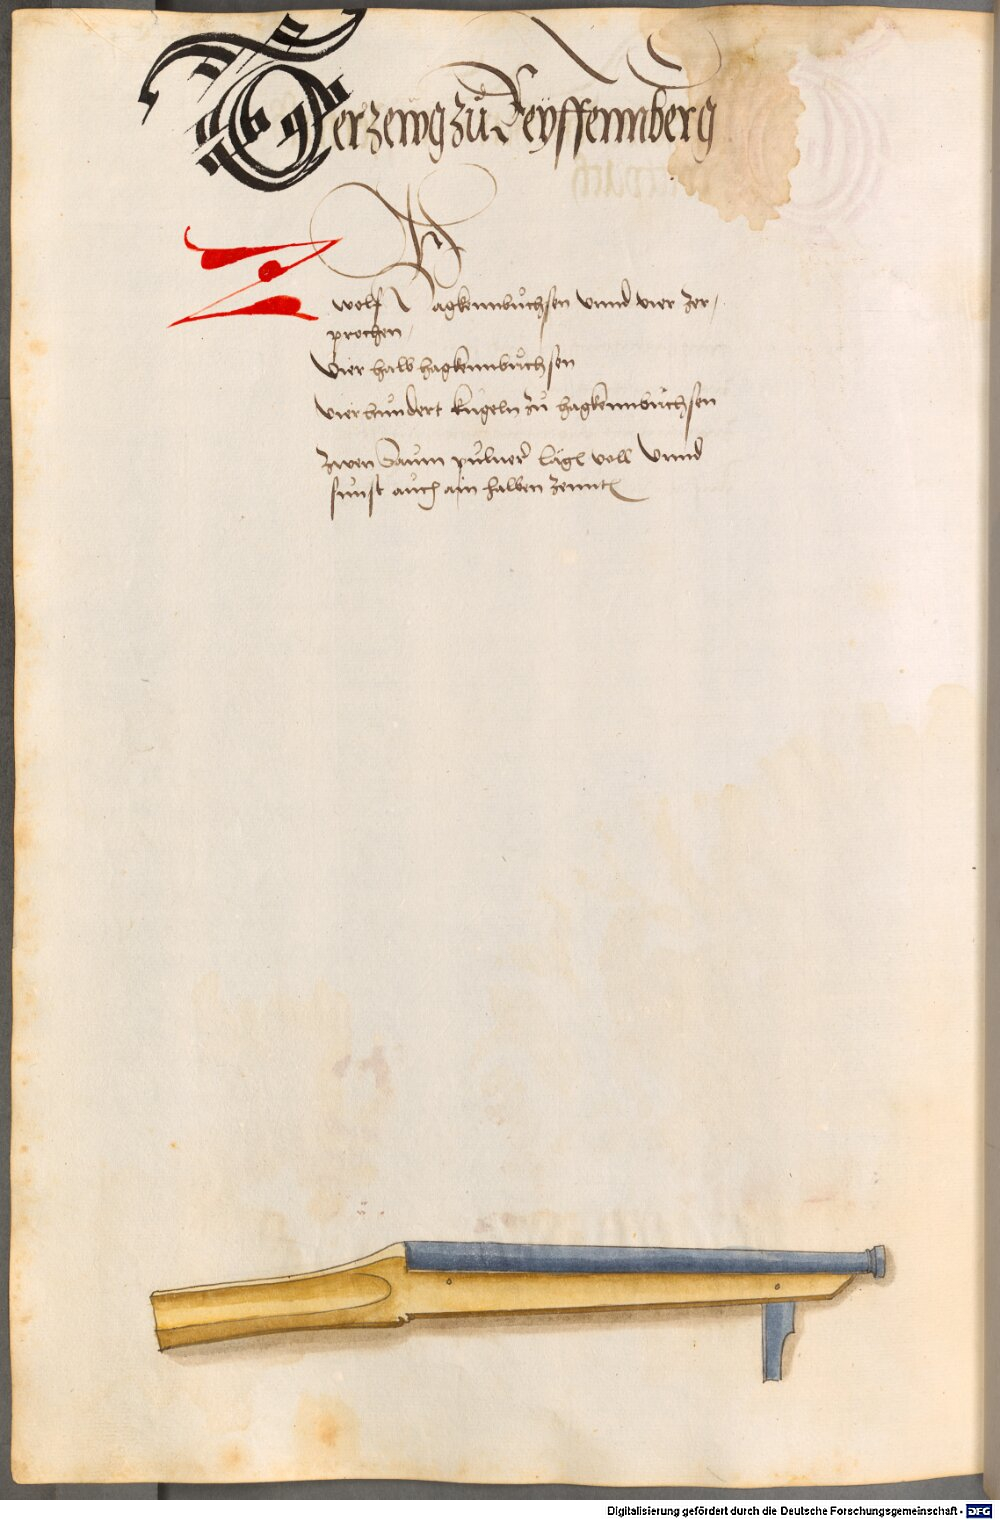 Der zeüg zů Reyffennberg
Zwolf Hagkennbůchsen vnnd vier zer-
prochen
Vier halb hagkennbůchsen
Vierhůndert kugeln zů hagkennbůchsen
Zwen Saum půluer lägl voll vnnd
sunst auch ain halben zennt
Digitalisierung gefördert durch die Deutsche Forschungsgemeinschaft - DFG